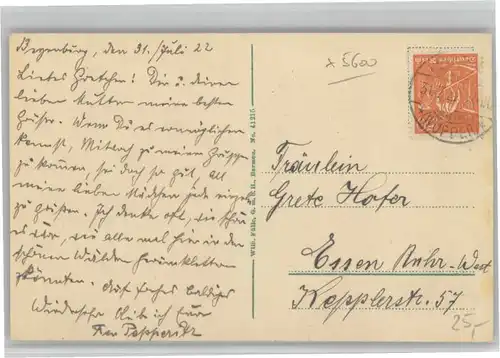 Begenburg, den 31. Juli 22
Liebes Gretchen! Dir u. deiner
lieben Mutter meine besten
Grüße. Wenn Du es ermöglichen
kannst, Mittwoch zu meiner Gruppe
zu kommen, sei doch so gut, all
meine lieben Mädchen jede eigens
zu grüßen. Ich denke oft, wie schön
es wär, wie alle mal hier in den
schönen Wäldern herumklettern
könnten. Auf frohes baldiges
Wiedersehn bleib ich Eure
Frau
Wilh. Fülle, G. m. b. H., Barmen. No. 11215
x 5600
Fräulein
Grete Hofer
Essen Ruhr-West
Kepplerstr. 57
25,-